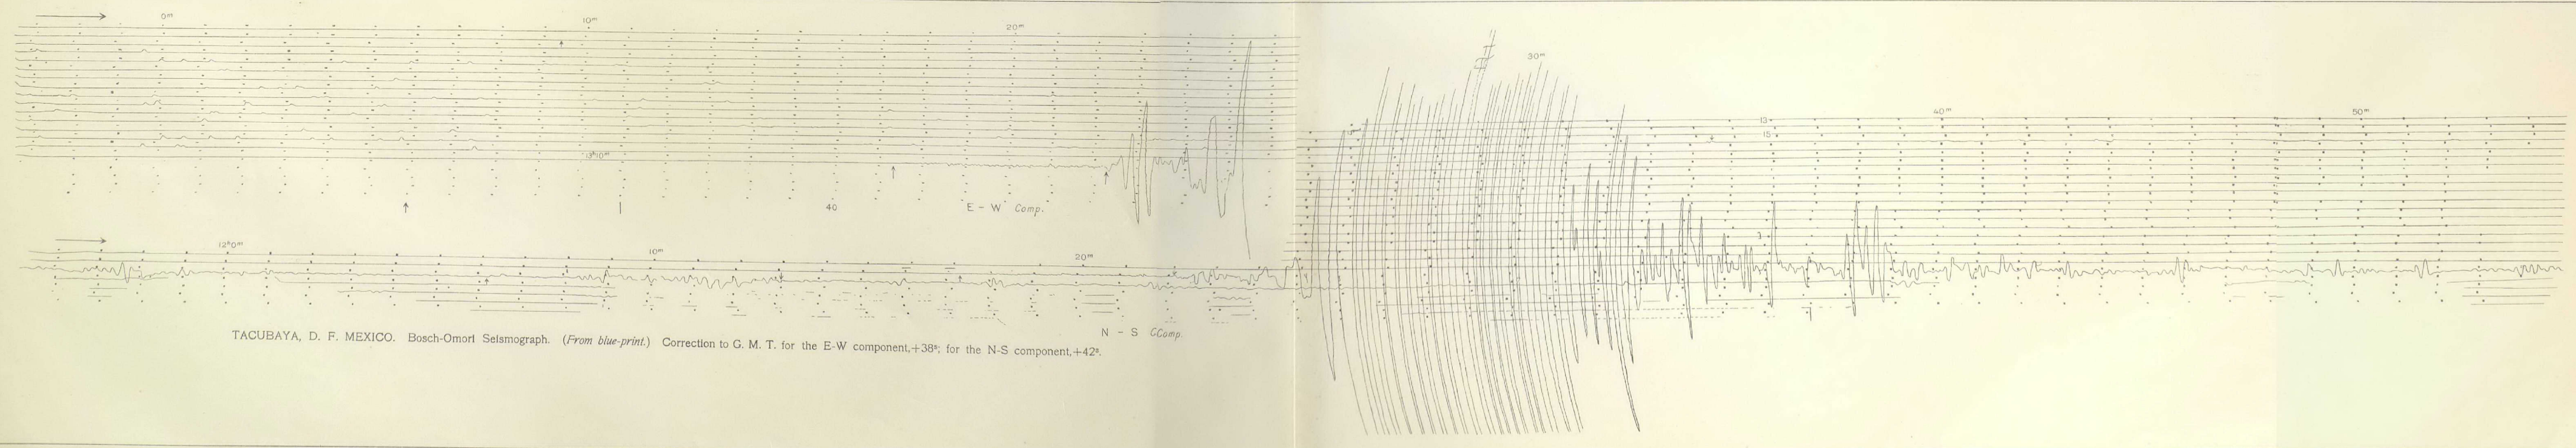 0ᵐ 10ᵐ 20ᵐ 30ᵐ 40ᵐ 50ᵐ
13
15
13ʰ10ᵐ
40 E – W Comp.
12ʰ0ᵐ 10ᵐ 20ᵐ
N – S CComp.
TACUBAYA, D. F. MEXICO. Bosch-Omori Seismograph. (From blue-print.) Correction to G. M. T. for the E-W component,+38ˢ; for the N-S component,+42ˢ.